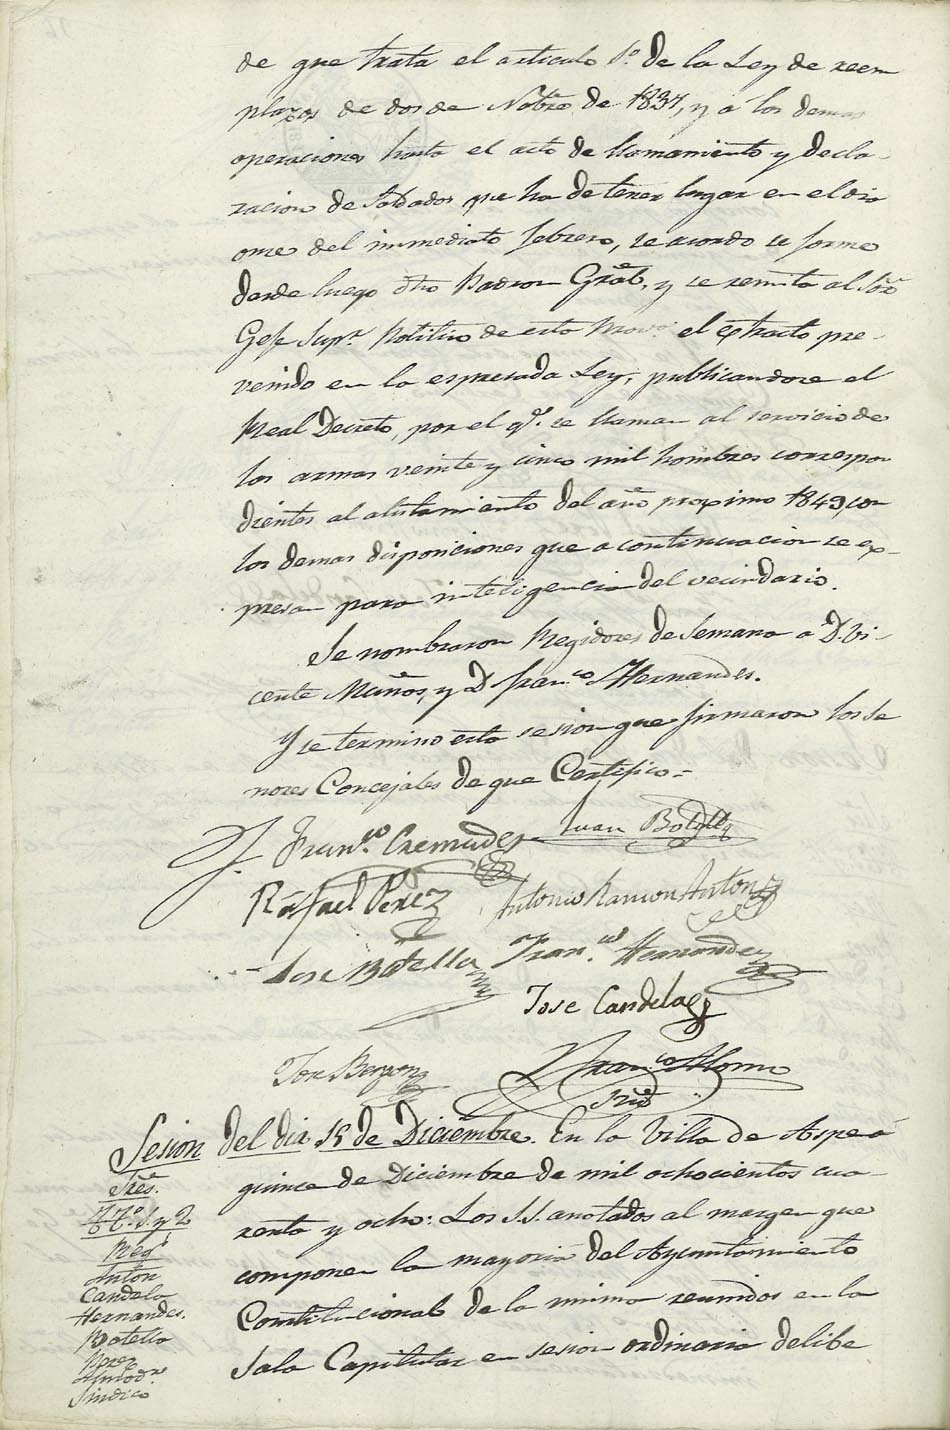 de que trata el articulo 1º de la Ley de reem
plazos de dos de Nobre de 1837, y a los demas
operaciones hasta el acto de llamamiento y decla-
racion de Soldados que ha de tener lugar en el dia
once del inmediato febrero, se acordo se forme
desde luego dho Padron Gral, y se remita al Sor
Gefe Supr Politico de esta Provª el extracto pre-
venido en la espresada Ley, publicandose el
Real Decreto, por el q.e se llaman al servicio de
las armas veinte y cinco mil hombres correspon
dientes al alistamiento del año proximo 1849, con
las demas disposiciones que a continuacion se ex-
presan para inteligencia del vecindario.
Se nombraron Regidores de Semana a D. Vi-
cente Muños, y D Fran.co Hernandes.
Y se termino esta sesion que firmaron los Se
nores Concejales de que Certifico =
Fran.co Cremades Juan Botella
Rafael Perez Antonio Ramon Anton
Jose Botella Fran.co Hernandez
Jose Candela
Jose Fran.co Alonso
Srio
Sesion del dia 15 de Diciembre. En la Villa de Aspe á
Sres.
quince de Diciembre de mil ochocientos cua-
TTs. 1º y 2
renta y ocho: Los S.S. anotados al margen que
Regs
componen la mayoria del Ayuntamiento
Anton
Candela
Constitucional de la misma reunidos en la
Hernandes.
Botella
Sala Capitular en sesion ordinaria delibe
Perez
Almodr
Sindico